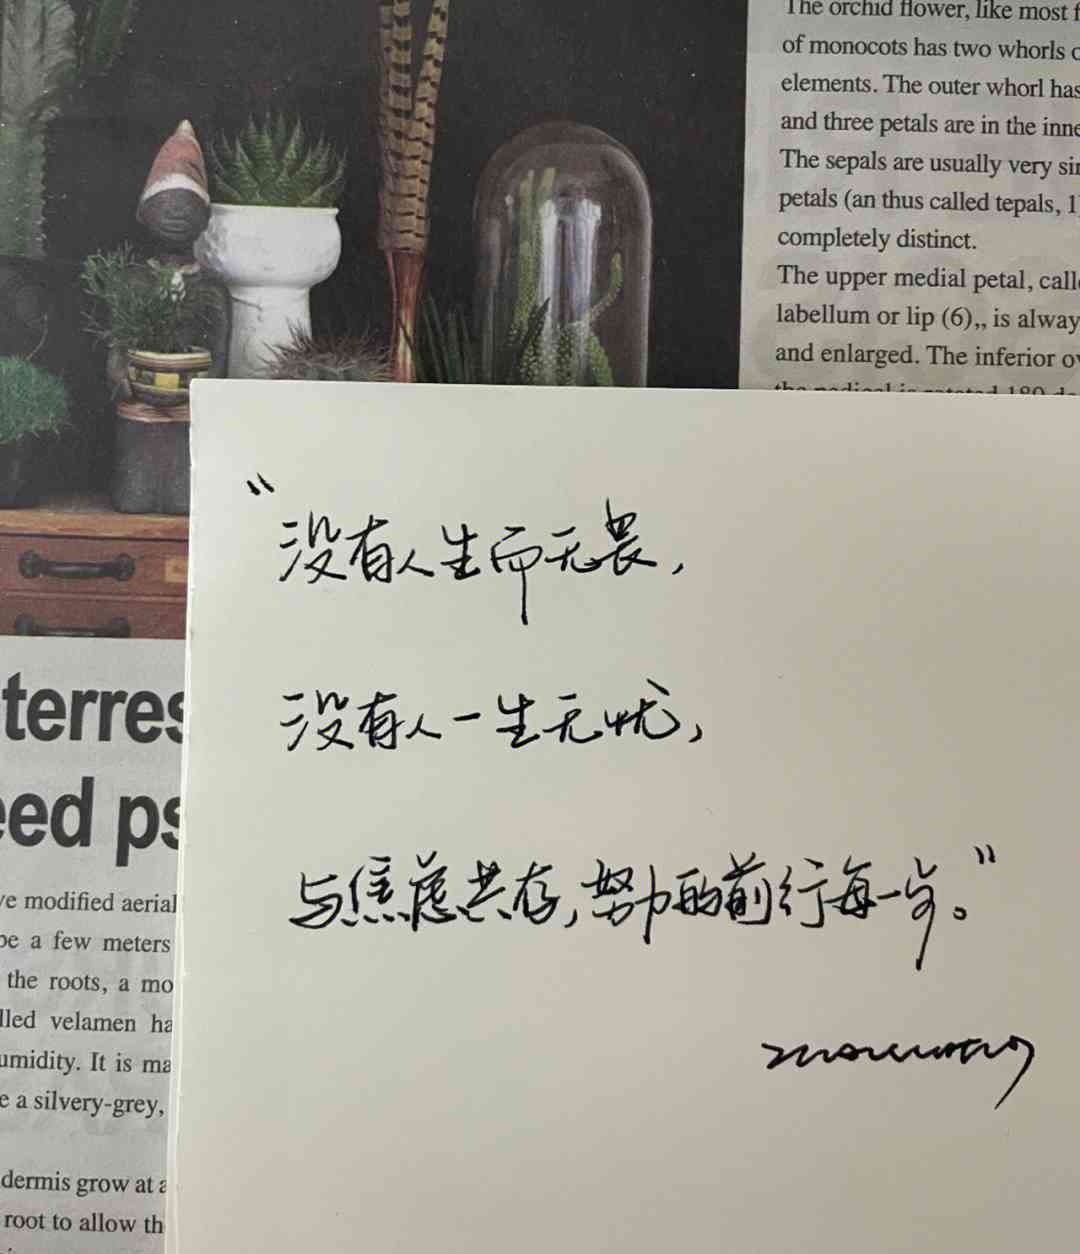 The orchid flower, like most f
of monocots has two whorls
elements. The outer whorl has
and three petals are in the inne
The sepals are usually very sin
petals (an thus called tepals, 1
completely distinct.
The upper medial petal, calle
labellum or lip (6),, is alway
and enlarged. The inferior ov
"没有人生而无畏,
没有人一生无忧,
与焦虑共存,努力的前行每一步。"
terres
eed ps
ve modified aerial
be a few meters
the roots, a mo
lled velamen ha
umidity. It is ma
e a silvery-grey,
dermis grow at a
root to allow th